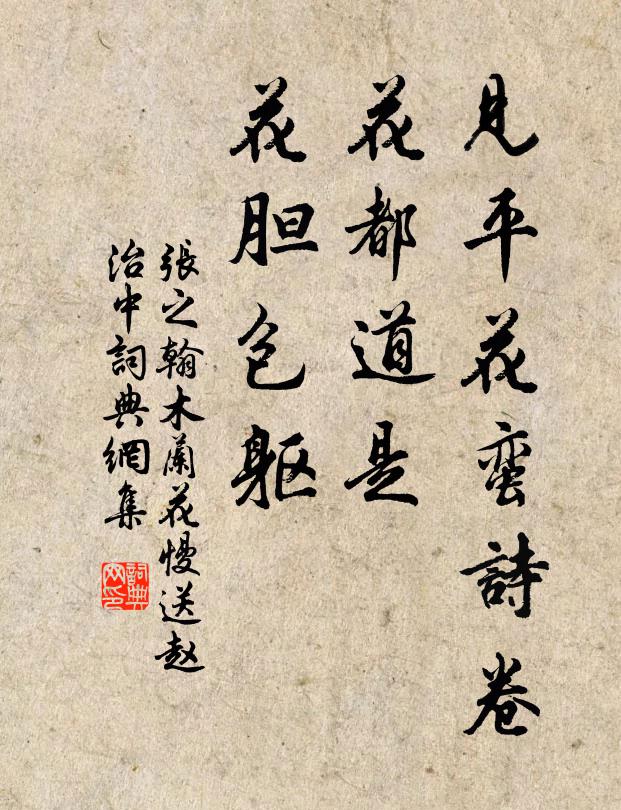 見平花蛮詩卷
花都道是
花胆包躯
張之翰木蘭花慢送赵
治中詞典網集
詞典
网印